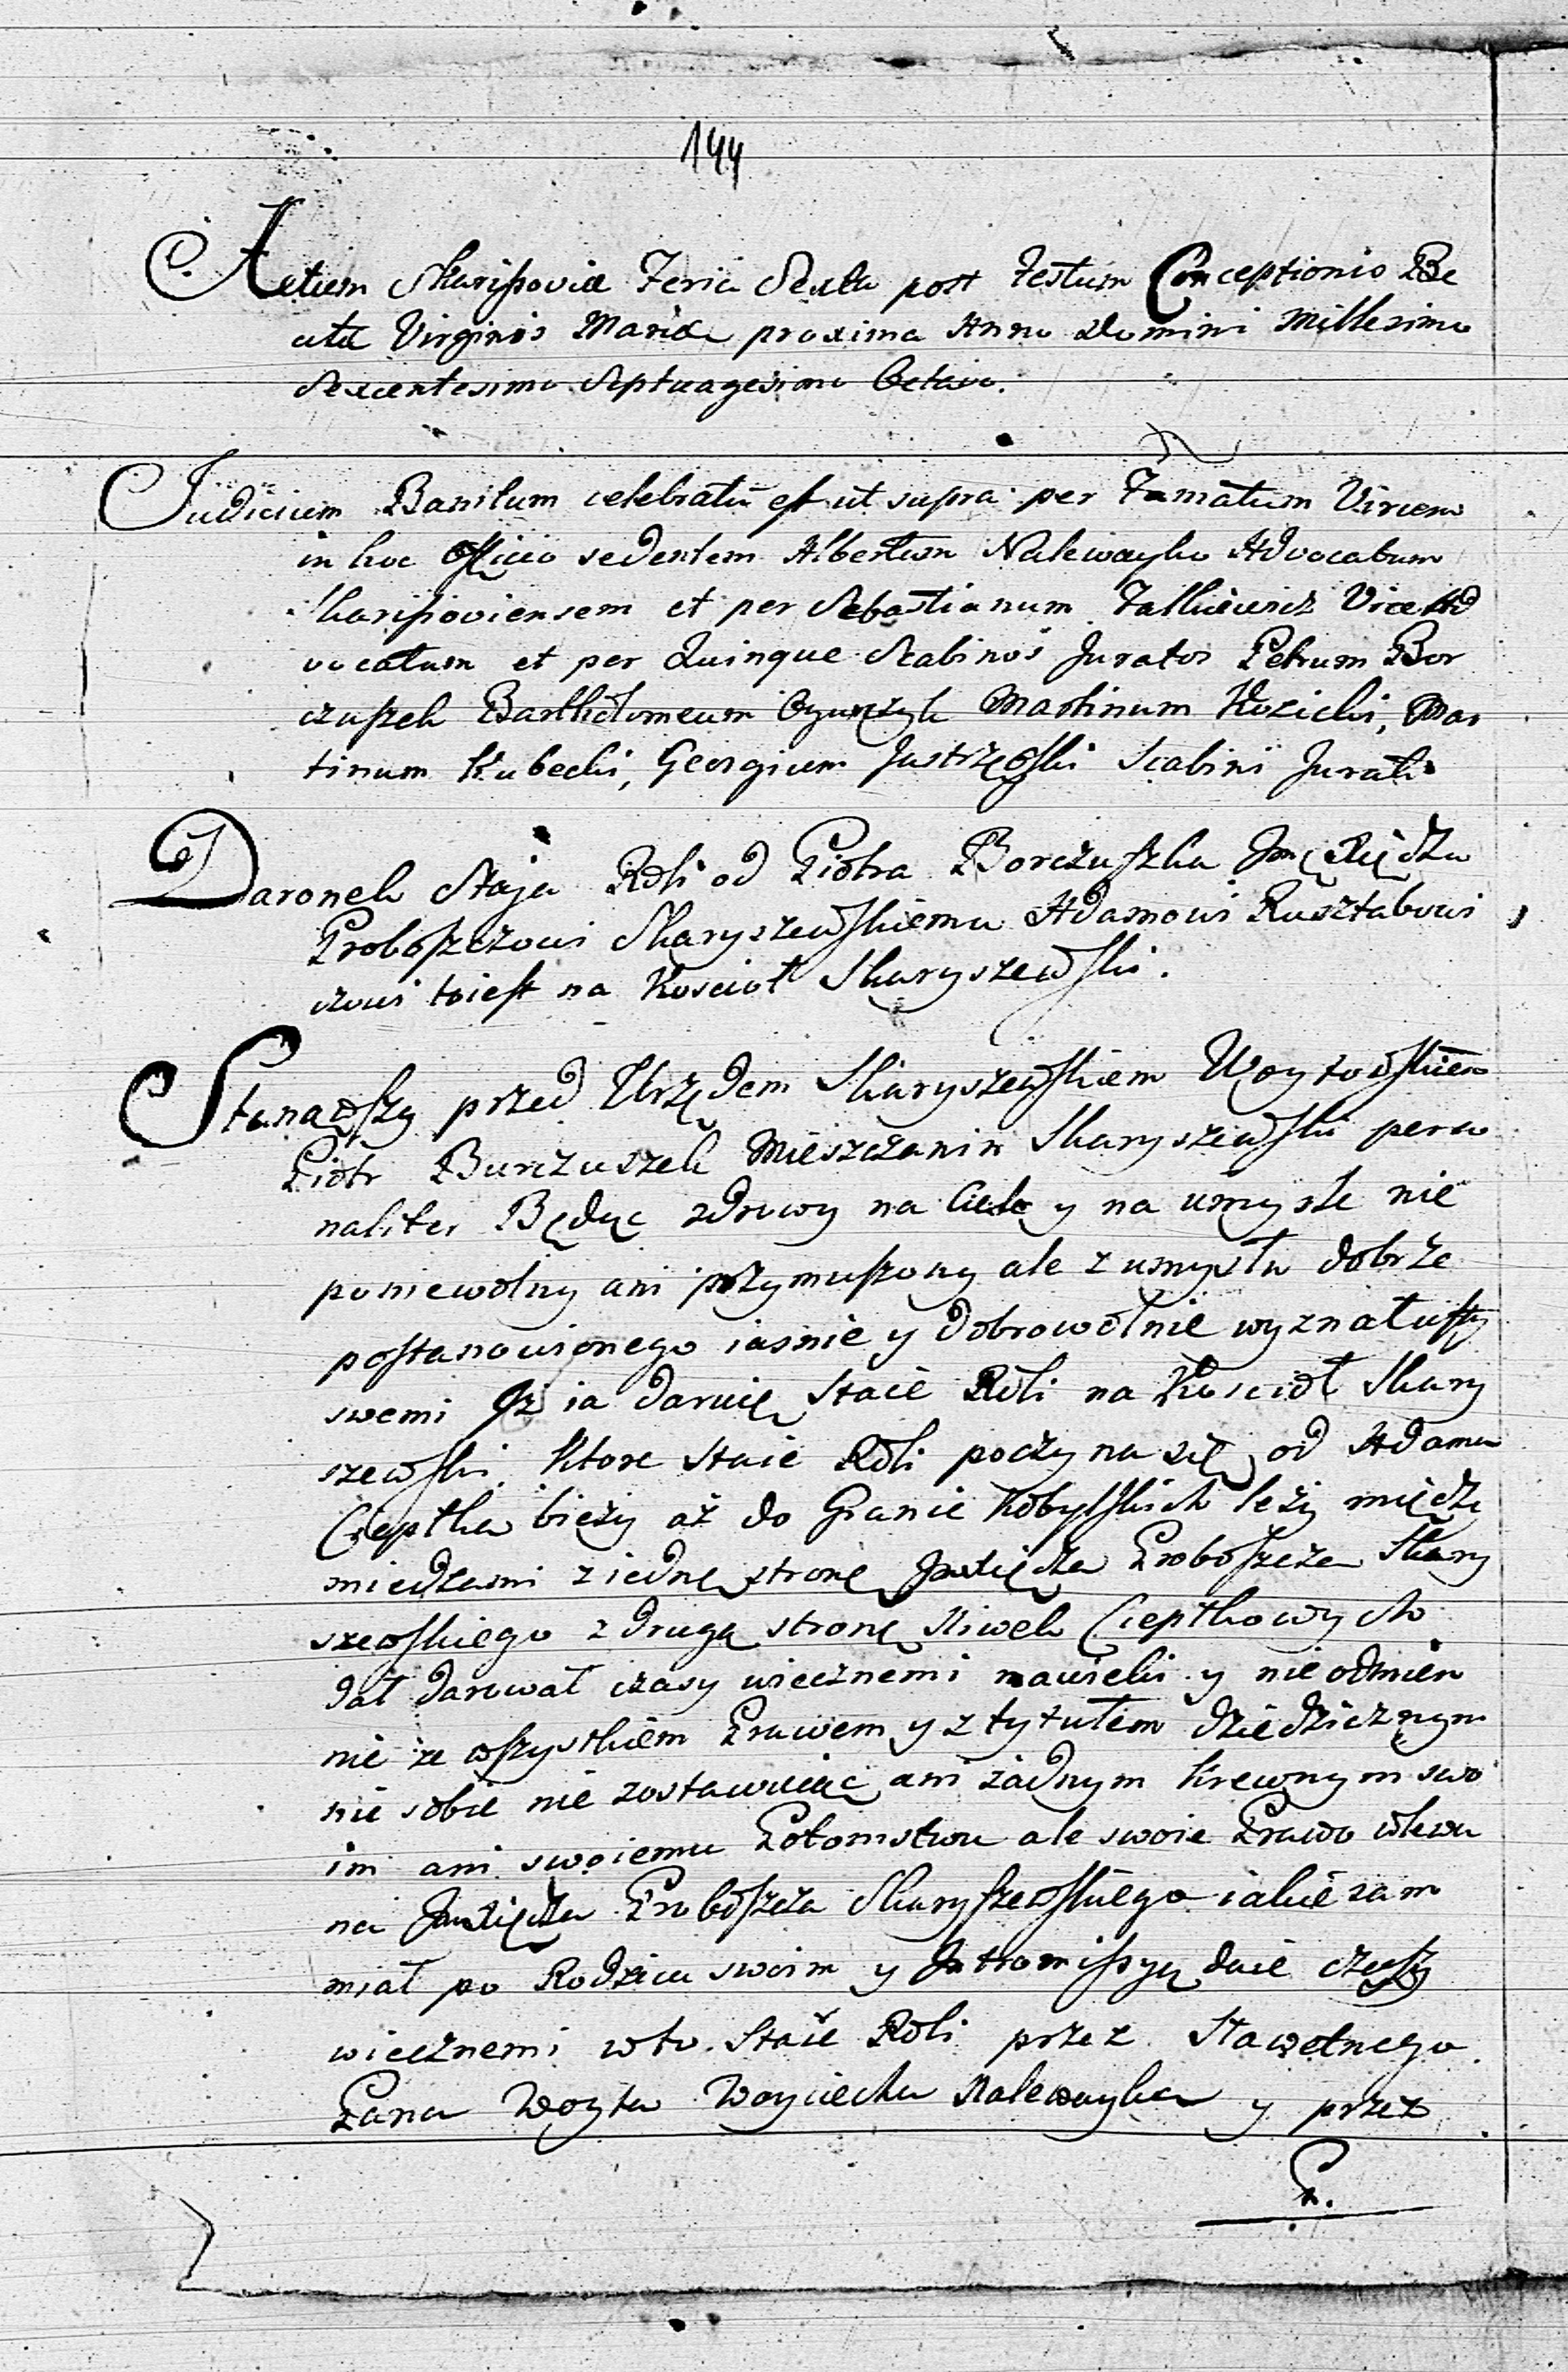 144
Actum Skariszoviæ Feria Sexta post Festum Conceptionis Be
atæ Virginis Mariæ proxima Anno Domini Millesimo
Sexcentesimo Septuagesimo Octavo.
Judicium Banitum celebratū est ut supra per Famatum Virum
in hoc Officio sedentem Albertum Nalewayko Advocatum
Skarißoviensem et per Sebastianum Falkiewicz Vice Ad
vocatum et per Quinque Scabinos Juratos Petrum Bor
czußek Bartholomeum Ogurczyk Martinum Kozicki, Mar
tinum Kubecki, Georgium Jastrzębski Scabini Jurati
Daronek Staja Roli od Piotra Borczuszka Jmć Xiędzu
Proboszczowi Skaryszewskiemu Adamowi Rusztabowi
czowi to iest na Koscioł Skaryszewski.
Stanąwszy przed Urzędem Skaryszewskiem Woytowskiem
Piotr Burczuszek Mieszczanin Skaryszewski perso
naliter Będąc zdrowy na Ciele y na umysle nie
poniewolny ani przymuszony ale z umysłu dobrze
postanowionego iasnie y dobrowolnie wyznał usty
swemi Jż ia daruię Staie Roli na Kosciół Skary
szewski. Ktore Staie Roli poczyna się od Adama
Ciepłka bieży aż do Granic Kobylskich leży między
miedzami z iednę stronę Jmci Xiędza Proboszcza Skary
szewskiego z drugą stronę Niwek Ciepłkowych
dał darował czasy wiecznemi nawieki y nieodmien
nie ze wszystkiem Prawem y z tytułem dziedzicznym
nic sobie nie zostawuiąc ani żadnym krewnym swo
im ani swoiemu Potomstwu ale swoie Prawo wlewa
na Jmci Xiędza Proboszcza Skaryszewskiego iakie sam
miał po Rodzicu swoim y Intromissyą daie czasy
wiecznemi w to Staie Roli przez Sławetnego
Pana Woyta Woyciecha Nalewayka y przez
P.